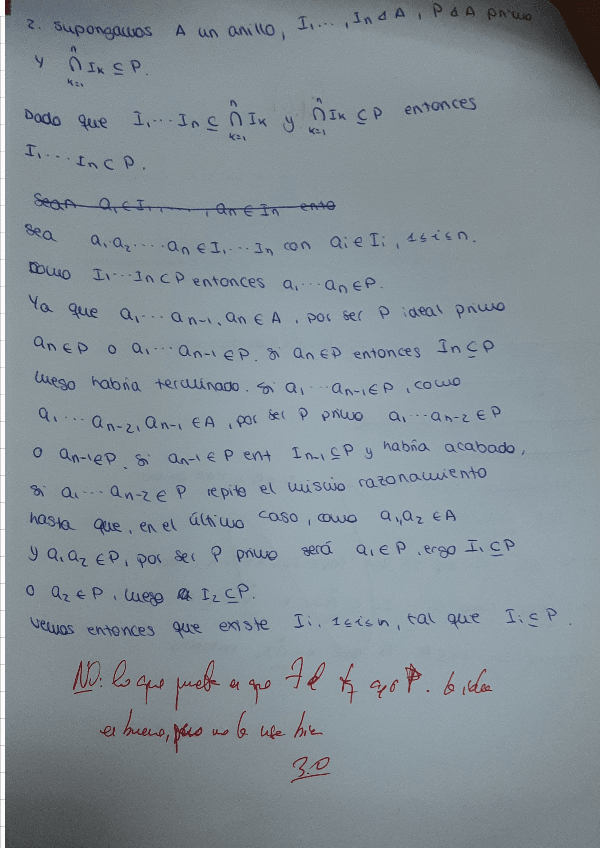 2. Supongamos A un anillo, I₁, ..., In ⊲ A, P ⊲ A primo
y ⋂ₖ₌₁ⁿ Iₖ ⊆ P.
Dado que I₁...In ⊆ ⋂ₖ₌₁ⁿ Iₖ y ⋂ₖ₌₁ⁿ Iₖ ⊆ P entonces
I₁...In ⊂ P.
Sean a₁ ∈ I₁, ..., an ∈ In ento
Sea a₁a₂....an ∈ I₁...In con ai ∈ Ii, 1≤i≤n.
Como I₁...In ⊂ P entonces a₁...an ∈ P.
Ya que a₁...an-1, an ∈ A, por ser P ideal primo
an ∈ P o a₁...an-1 ∈ P. Si an ∈ P entonces In ⊆ P
luego habría terminado. Si a₁...an-1 ∈ P, como
a₁...an-2, an-1 ∈ A, por ser P primo a₁...an-2 ∈ P
o an-1 ∈ P. Si an-1 ∈ P ent In-1 ⊆ P y habría acabado,
si a₁...an-2 ∈ P repito el mismo razonamiento
hasta que, en el último caso, como a₁, a₂ ∈ A
y a₁a₂ ∈ P, por ser P primo será a₁ ∈ P, ergo I₁ ⊆ P
o a₂ ∈ P, luego I₂ ⊆ P.
Vemos entonces que existe Ii, 1≤i≤n, tal que Ii ⊆ P.
NO: lo que es que ∃ P. la idea
es buena, pero no la usa bien
3.0